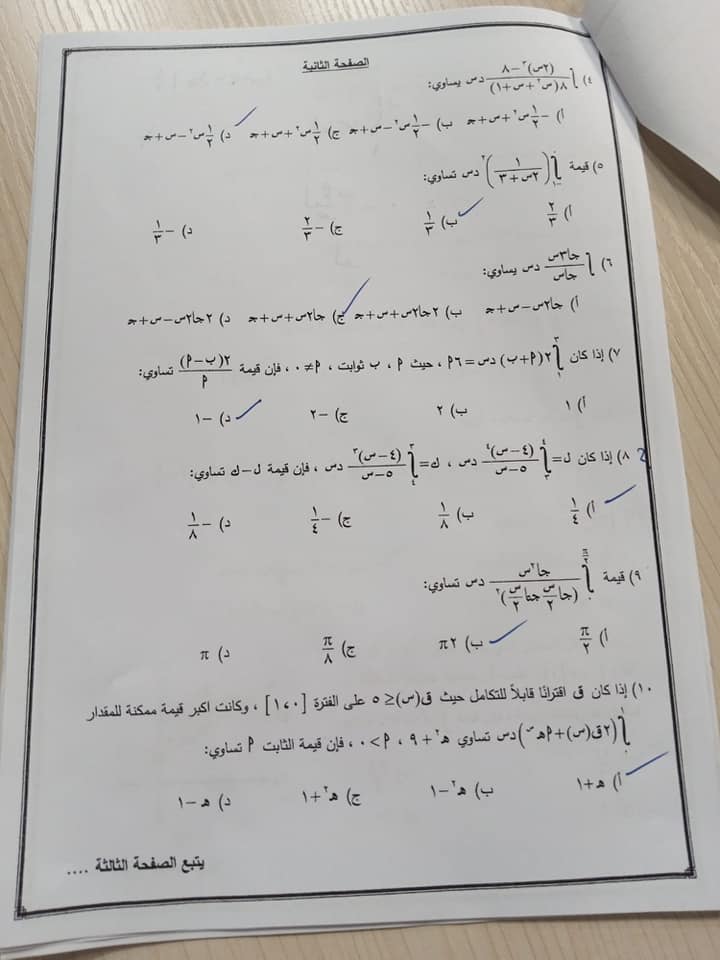 الصفحة الثانية
٤) ∫ ((٢س)³ − ٨) / (٨(س² + س + ١)) دس يساوي:
أ) −١/٢ س² + س + جـ ب) −١/٢ س² − س + جـ ج) ١/٢ س² + س + جـ د) ١/٢ س² − س + جـ
٥) قيمة ∫ (١ / (٢س + ٣))² دس تساوي:
أ) ٢/٣ ب) ١/٣ ج) −٢/٣ د) −١/٣
٦) ∫ جا٣س / جاس دس يساوي:
أ) جا٢س − س + جـ ب) ٢جا٢س + س + جـ ج) جا٢س + س + جـ د) ٢جا٢س − س + جـ
٧) إذا كان ∫ ٢(م + ب) دس = ٦م ، حيث م ، ب ثوابت ، م ≠ ٠ ، فإن قيمة ٢(ب − م) / م تساوي:
أ) ١ ب) ٢ ج) −٢ د) −١
٨) إذا كان ل = ∫ (٤ − س)⁴ / (٥ − س) دس ، ك = ∫ (٤ − س)³ / (٥ − س) دس ، فإن قيمة ل − ك تساوي:
أ) ١/٤ ب) ١/٨ ج) −١/٤ د) −١/٨
٩) قيمة ∫ جا²س / (جا س/٢ جتا س/٢)² دس تساوي:
أ) π/٢ ب) ٢π ج) π/٨ د) π
١٠) إذا كان ق اقترانًا قابلاً للتكامل حيث ق(س) ≤ ٥ على الفترة [٠،١] ، وكانت اكبر قيمة ممكنة للمقدار
∫ (٢ق(س) + م هـ^س) دس تساوي هـ² + ٩ ، م > ٠ ، فإن قيمة الثابت م تساوي:
أ) هـ + ١ ب) هـ² − ١ ج) هـ² + ١ د) هـ − ١
يتبع الصفحة الثالثة ....